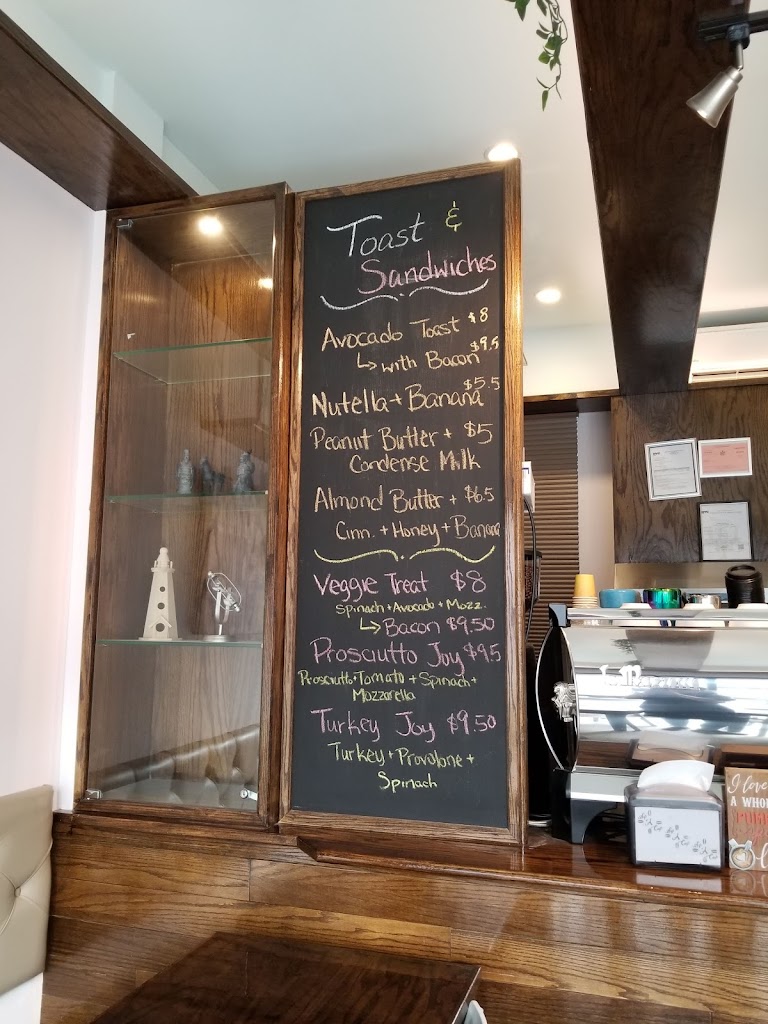 Toast &
Sandwiches
Avocado Toast $8
↳ with Bacon $9.5
Nutella + Banana $5.5
Peanut Butter + $5
Condense Milk
Almond Butter + $6.5
Cinn. + Honey + Banana
Veggie Treat $8
Spinach + Avocado + Mozz.
↳ Bacon $9.50
Prosciutto Joy $9.5
Prosciutto + Tomato + Spinach +
Mozzarella
Turkey Joy $9.50
Turkey + Provolone +
Spinach
I love
A WHO